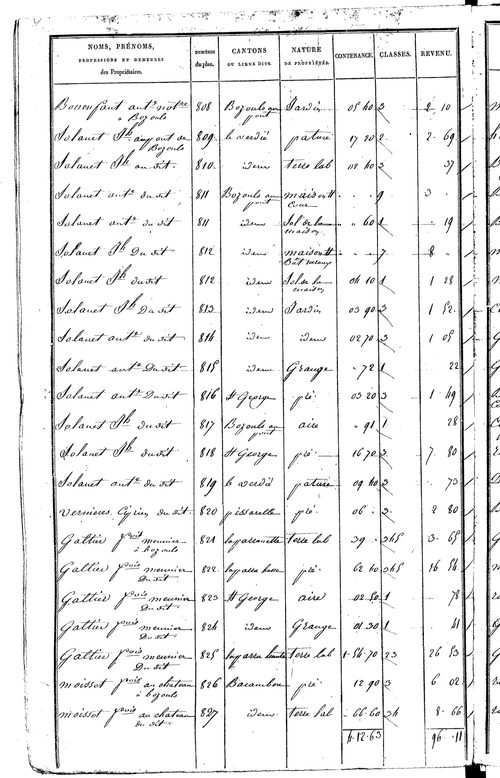 NOMS, PRÉNOMS, PROFESSIONS ET DEMEURES des Propriétaires. NUMÉROS du plan. CANTONS OU LIEUX DITS. NATURE DE PROPRIÉTÉS. CONTENANCE. CLASSES. REVENU.
Bonnefous ant.e not.re à Bozouls 808 Bozouls au pont Jardin 05 40 3 2 10
Solanet Jh au pont de Bozouls 809 le verdié pature 17 20 2 2 69
Solanet Jh au dit 810 idem terre lab 02 40 3 37
Solanet ant.e du dit 811 Bozouls au pont maison Cour 9 3
Solanet ant.e du dit 811 idem Sol de la maison 60 1 19
Solanet Jh Du dit 812 idem maison 7 8
Solanet Jh du dit 812 idem Sol de la maison 04 10 1 1 28
Solanet Jh Du dit 813 idem Jardin 03 90 3 1 52
Solanet ant.e du dit 814 idem idem 02 70 3 1 05
Solanet ant.e Du dit 815 idem Grange 72 1 22
Solanet ant.e Du dit 816 St George pré 03 20 3 1 49
Solanet Jh du dit 817 Bozouls au pont aire 91 1 28
Solanet Jh du dit 818 St George pré 16 70 3 7 80
Solanet ant.e du dit 819 le verdié pature 09 40 3 73
Vernieres Ciprien du dit 820 pissarelle pré 06 3 2 80
Galtier fçois meunier à bozouls 821 terre lab 39 345 3 65
Galtier fçois meunier Du dit 822 pré 62 60 345 16 54
Galtier fçois meunier Du dit 823 St George aire 02 50 1 78
Galtier fçois meunier Du dit 824 idem Grange 01 30 1 41
Galtier fçois meunier Du dit 825 terre lab 1 54 70 23 26 53
moissot fçois au chateau à bozouls 826 pré 12 90 3 6 02
moissot fçois au chateau du dit 827 idem terre lab 66 60 34 8 66
4.12.63 96.11